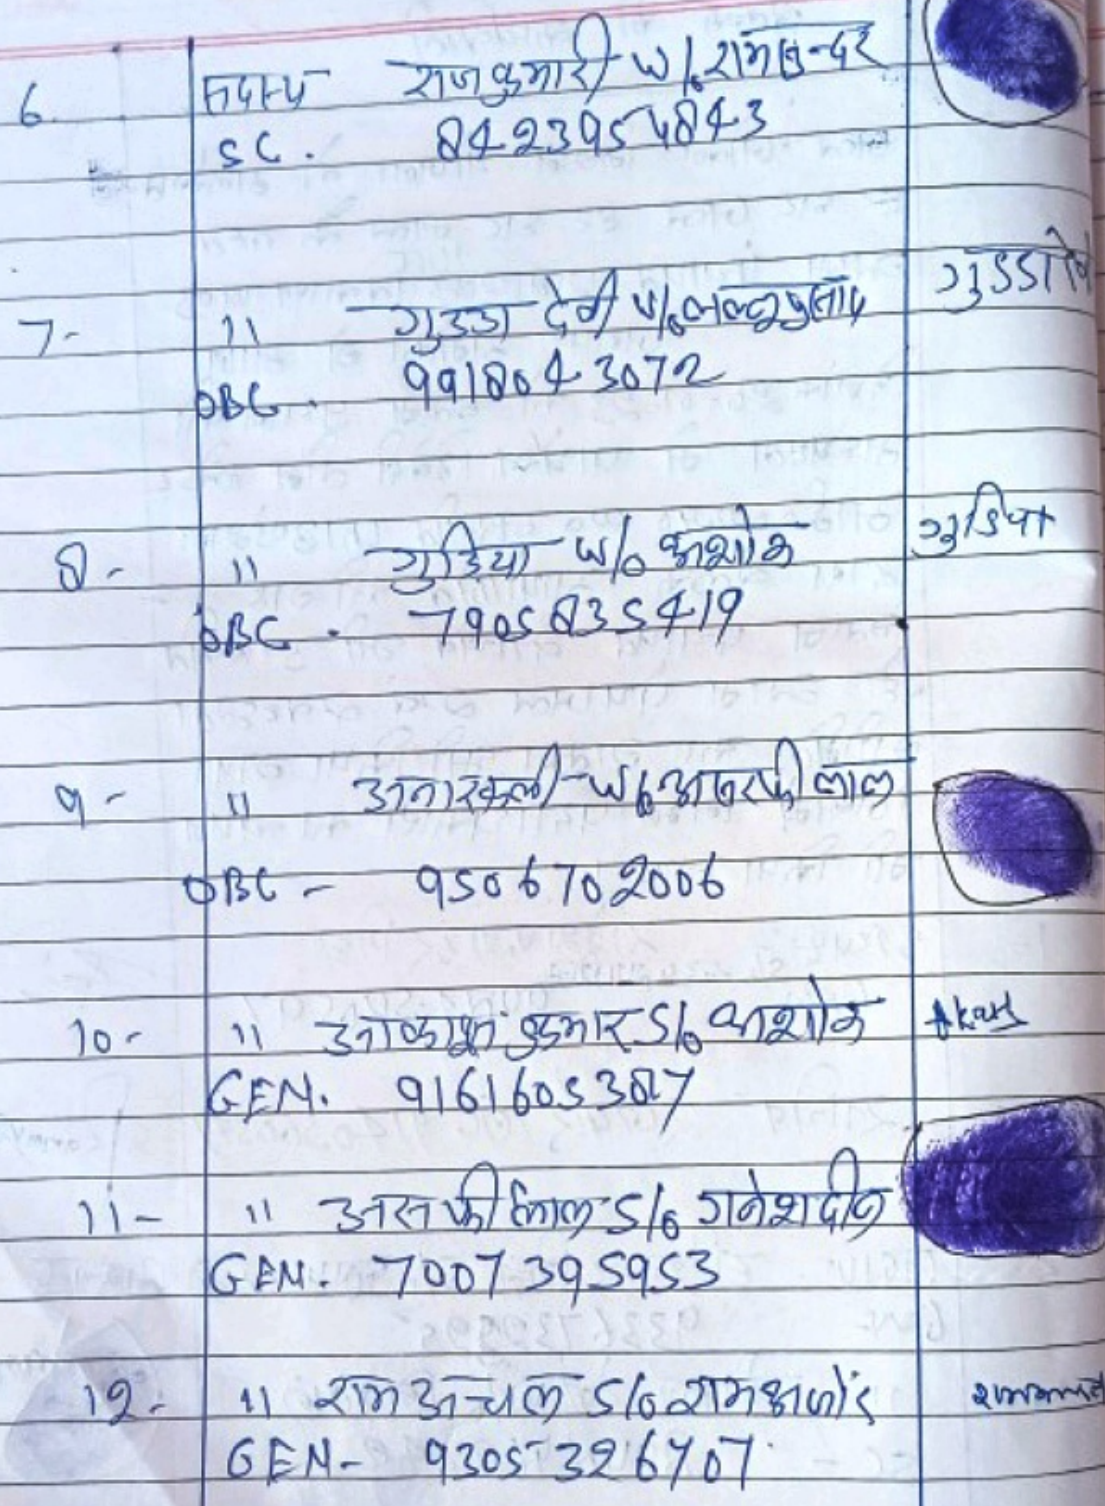 6. सदस्य राजकुमारी w/o रामसुन्दर
SC. 8423954843
7- " गुड्डा देवी w/o लल्लू प्रसाद गुड्डा देवी
OBC. 9918043072
8- " गुडिया w/o अशोक गुडिया
OBC. 7905835419
9- " अनारकली w/o असरफी लाल
OBC - 9506702006
10- " आकाश कुमार S/o अशोक Akash
GEN. 9161605387
11- " असरफी लाल S/o गनेशदीन
GEN. 7007395953
12- " राम अचल S/o
GEN- 9305326707